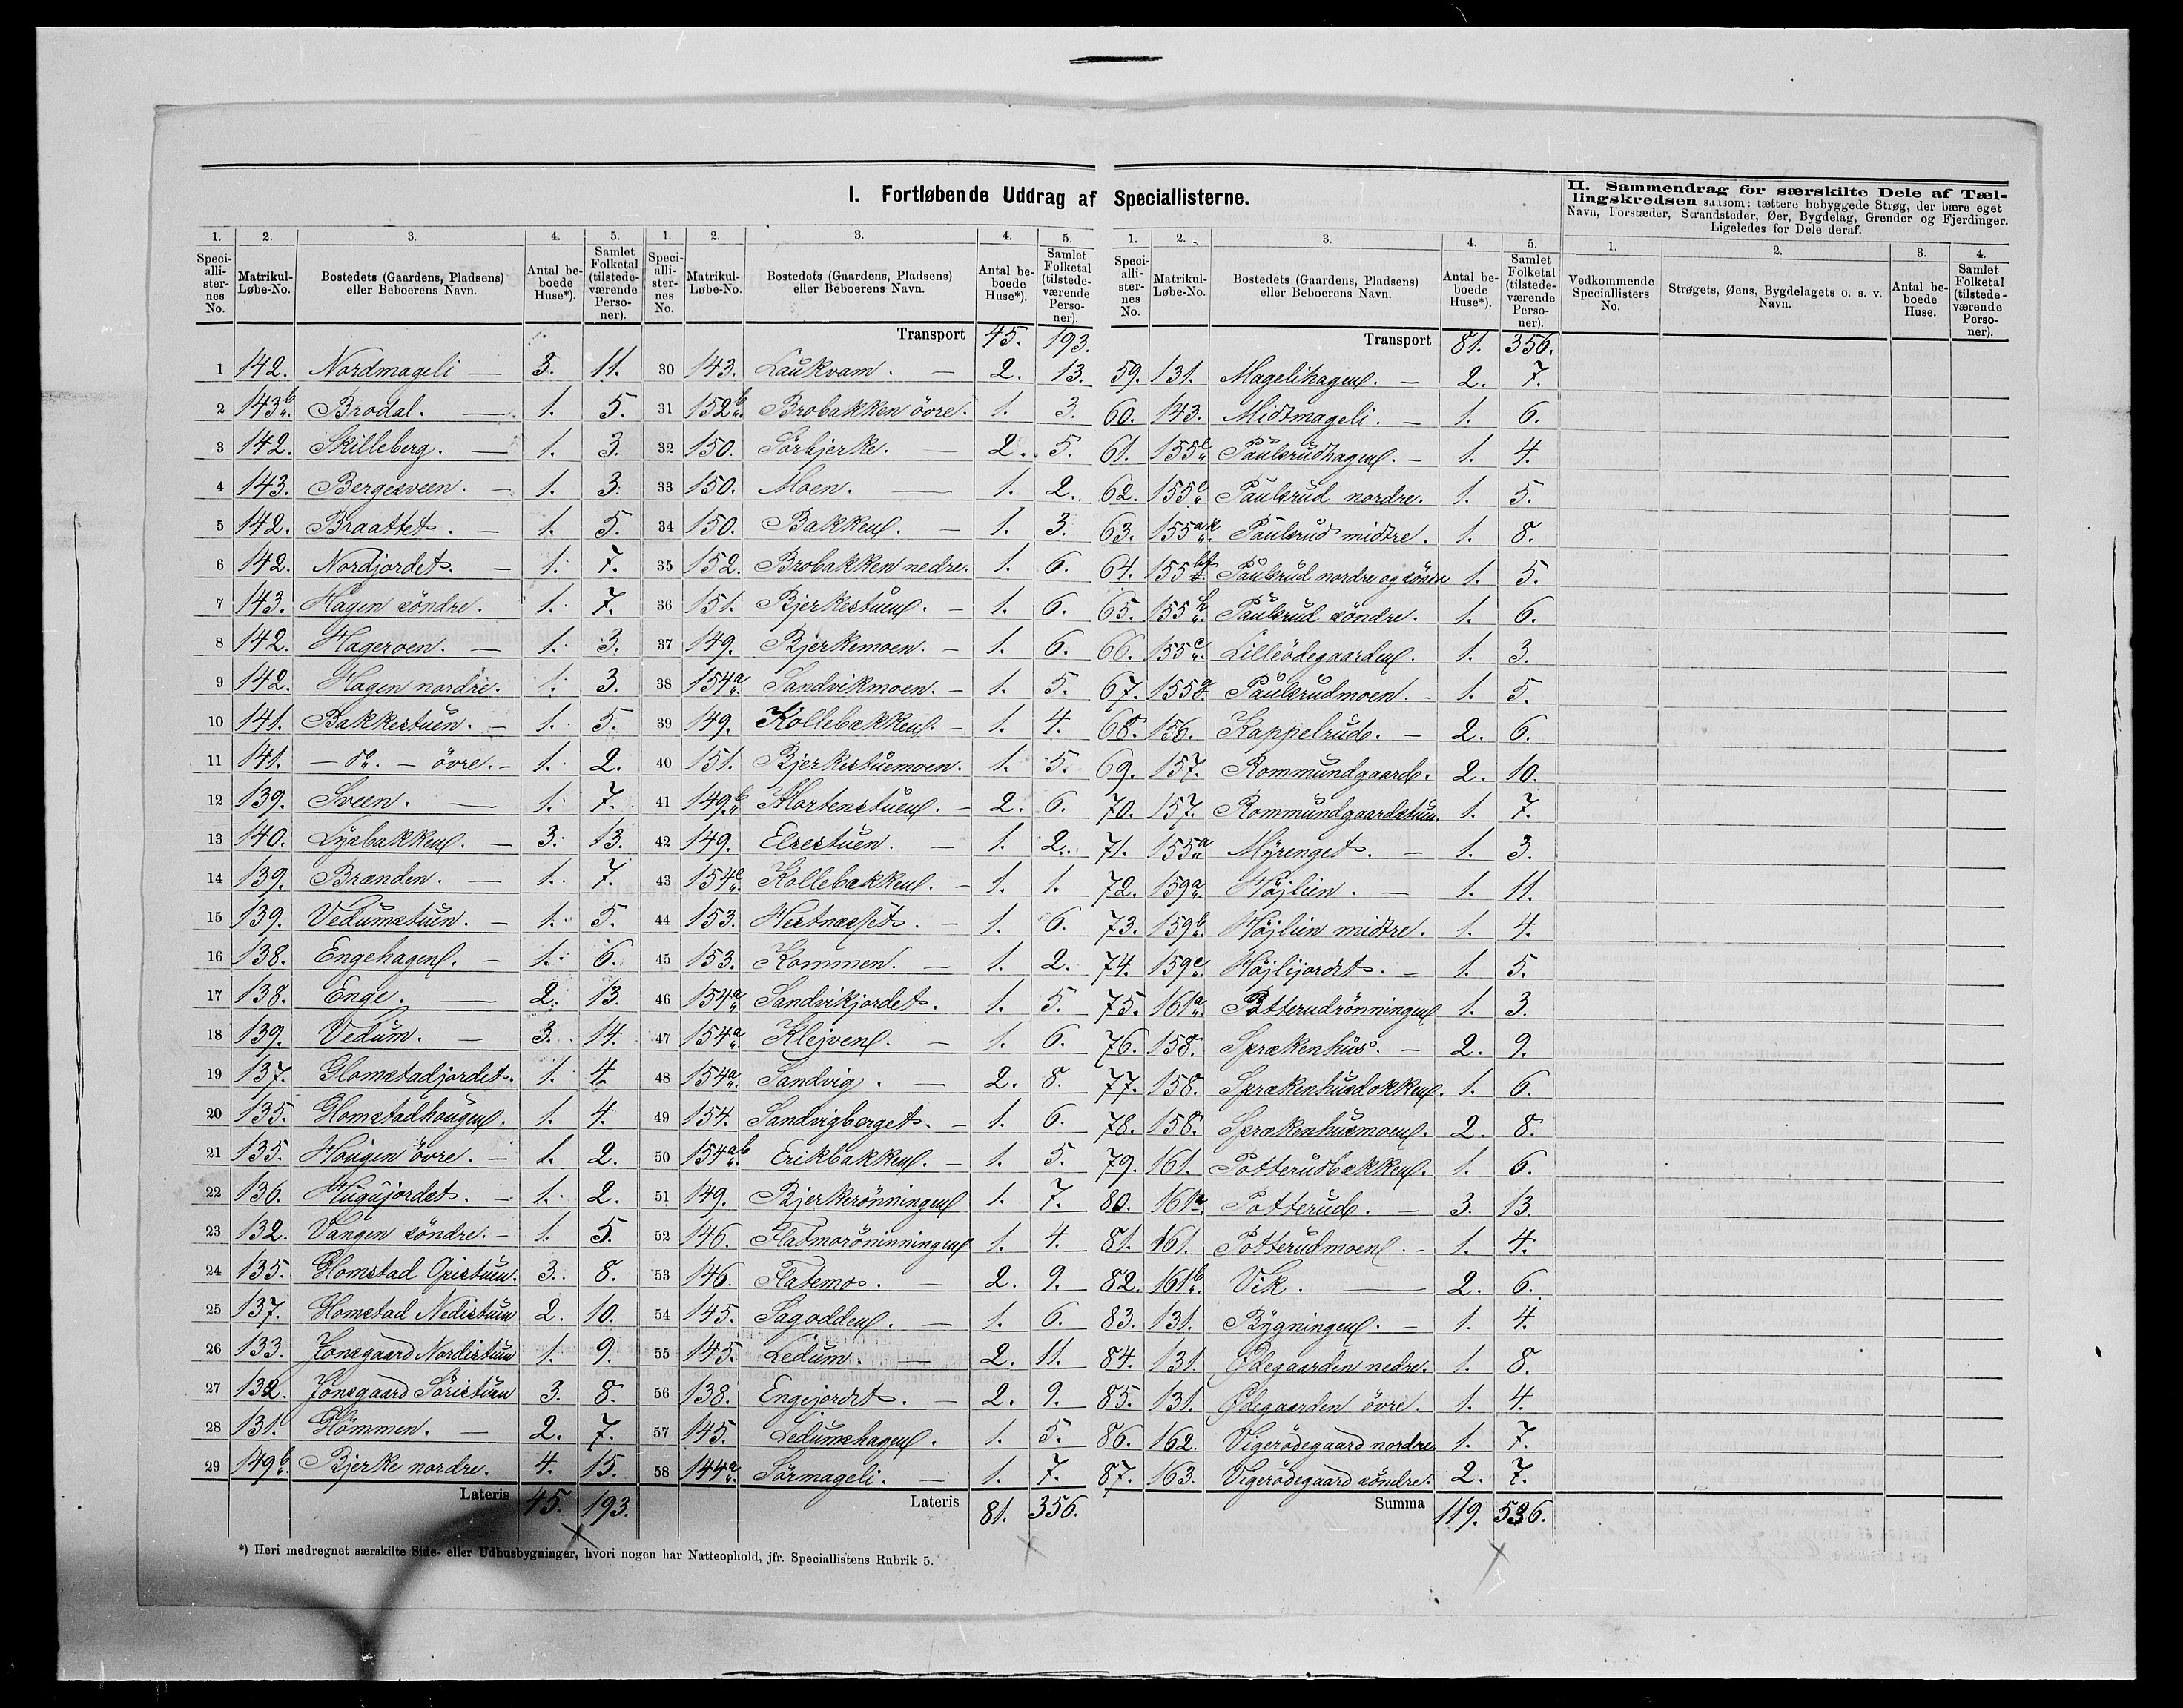 I. Fortløbende Uddrag af Speciallisterne.
II. Sammendrag for særskilte Dele af Tæl-
lingskredsen saasom: tættere bebyggede Strøg, der bære eget
Navn, Forstæder, Strandsteder, Øer, Bygdelag, Grender og Fjerdinger.
Ligeledes for Dele deraf.
1. 2. 3. 4. 5.
Speci-alli-ster-nes No. Matrikul-Løbe-No. Bostedets (Gaardens, Pladsens) eller Beboerens Navn. Antal be-boede Huse*). Samlet Folketal (tilstede-værende Perso-ner).
1 142. Nordmageli — 3. 11.
2 143b. Brodal. — 1. 5.
3 142. Skilleberg. — 1. 3.
4 143. Bergesveen. — 1. 3.
5 142. Braattet. — 1. 5.
6 142. Nordjordet. — 1. 7.
7 143. Hagen söndre. 1. 7.
8 142. Hageroen. — 1. 3.
9 142. Hagen nordre. 1. 3.
10 141. Bakkestuen. — 1. 5.
11 141. — do. — övre. — 1. 2.
12 139. Sveen. — 1. 7.
13 140. Lysbakken. — 3. 13.
14 139. Brænden. — 1. 7.
15 139. Vedumstuen. — 1. 5.
16 138. Engehagen. — 1. 6.
17 138. Enge. — 2. 13.
18 139. Vedum. — 3. 14.
19 137. Glomstadjordet. 1. 4.
20 135. Glomstadhougen. 1. 4.
21 135. Hougen övre. — 1. 2.
22 136. Hugujordet. — 1. 2.
23 132. Vangen söndre. — 1. 5.
24 135. Glomstad Opistuen. 3. 8.
25 137. Glomstad Nedistuen 2. 10.
26 133. Jonsgaard Nordistuen 1. 9.
27 132. Jonsgaard Söristuen 3. 8.
28 131. Glömmen. — 2. 7.
29 149b. Bjerke nordre. 4. 15.
Lateris 45. 193.
1. 2. 3. 4. 5.
Speci-alli-ster-nes No. Matrikul-Løbe-No. Bostedets (Gaardens, Pladsens) eller Beboerens Navn. Antal be-boede Huse*). Samlet Folketal (tilstede-værende Perso-ner).
Transport 45. 193.
30 143. Laukvam. — 2. 13.
31 152b. Brobakken övre. 1. 3.
32 150. Sörbjerke. — 2. 5.
33 150. Moen. — 1. 2.
34 150. Bakken. — 1. 3.
35 152. Brobakken nedre. 1. 6.
36 151. Bjerkestuen. — 1. 6.
37 149. Bjerkemoen. — 1. 6.
38 154a. Sandvikmoen. — 1. 5.
39 149. Kollebakken. — 1. 4.
40 151. Bjerkestuemoen. 1. 5.
41 149b. Mortenstuen. — 2. 6.
42 149. Elsestuen. — 1. 2.
43 154c. Kollebakken. — 1. 1.
44 153. Hestnæsset. — 1. 6.
45 153. Kommen. — 1. 2.
46 154a. Sandvikjordet. 1. 5.
47 154a. Klejven. — 1. 6.
48 154a. Sandvig. — 2. 8.
49 154. Sandvigberget. — 1. 6.
50 154ab. Erikbakken. — 1. 5.
51 149. Bjerkerönningen 1. 7.
52 146. Flatmoröninningen 1. 4.
53 146. Flatemo. — 2. 9.
54 145. Sagodden. — 1. 6.
55 145. Ledum. — 2. 11.
56 138. Engejordet. — 2. 9.
57 145. Ledumshagen. 1. 5.
58 144a. Sörmageli. — 1. 7.
Lateris 81. 356.
1. 2. 3. 4. 5.
Speci-alli-ster-nes No. Matrikul-Løbe-No. Bostedets (Gaardens, Pladsens) eller Beboerens Navn. Antal be-boede Huse*). Samlet Folketal (tilstede-værende Perso-ner).
Transport 81. 356.
59. 131. Magelihagen. — 2. 7.
60. 143. Midtmageli. — 1. 6.
61. Paulsrudhagen. — 1. 4.
62. Paulsrud nordre. 1. 5.
63. 155ak. Paulsrud midtre. 1. 8.
64. Paulsrud nordre og söndre 1. 5.
65. 155h. Paulsrud söndre. 1. 6.
66. 155c. Lilleödegaarden. 1. 3.
67. 155g. Paulsrudmoen. — 1. 5.
68. 156. Kappelrud. — 2. 6.
69. 157. Rommundgaard. 2. 10.
70. 157. Rommundgaardstuen. 1. 7.
71. 155a. Myrenget. — 1. 3.
72. 159a. Höjlien. — 1. 11.
73. 159b. Höjlien midtre. 1. 4.
74. 159c. Höjlijordet. — 1. 5.
75. 161a. Potterudrönningen 1. 3.
76. 158. Sprækenhus. — 2. 9.
77. 158. Sprækenhusdokken. 1. 6.
78. 158. Sprækenhusmoen. 2. 8.
79. 161. Potterudbakken. 1. 6.
80. 161a. Potterud. — 3. 13.
81. 161. Potterudmoen. — 1. 4.
82. 161b. Vik. — 2. 6.
83. 131. Bygningen. — 1. 4.
84. 131. Ödegaarden nedre. 1. 8.
85. 131. Ödegaarden övre. 1. 4.
86. 162. Vigerödegaard nordre 1. 7.
87. 163. Vigerödegaard söndre. 2. 7.
Summa 119. 536.
1. 2. 3. 4.
Vedkommende Speciallisters No. Strøgets, Øens, Bygdelagets o. s. v. Navn. Antal be-boede Huse. Samlet Folketal (tilstede-værende Perso-ner).
*) Heri medregnet særskilte Side- eller Udhusbygninger, hvori nogen har Natteophold, jfr. Speciallistens Rubrik 5.